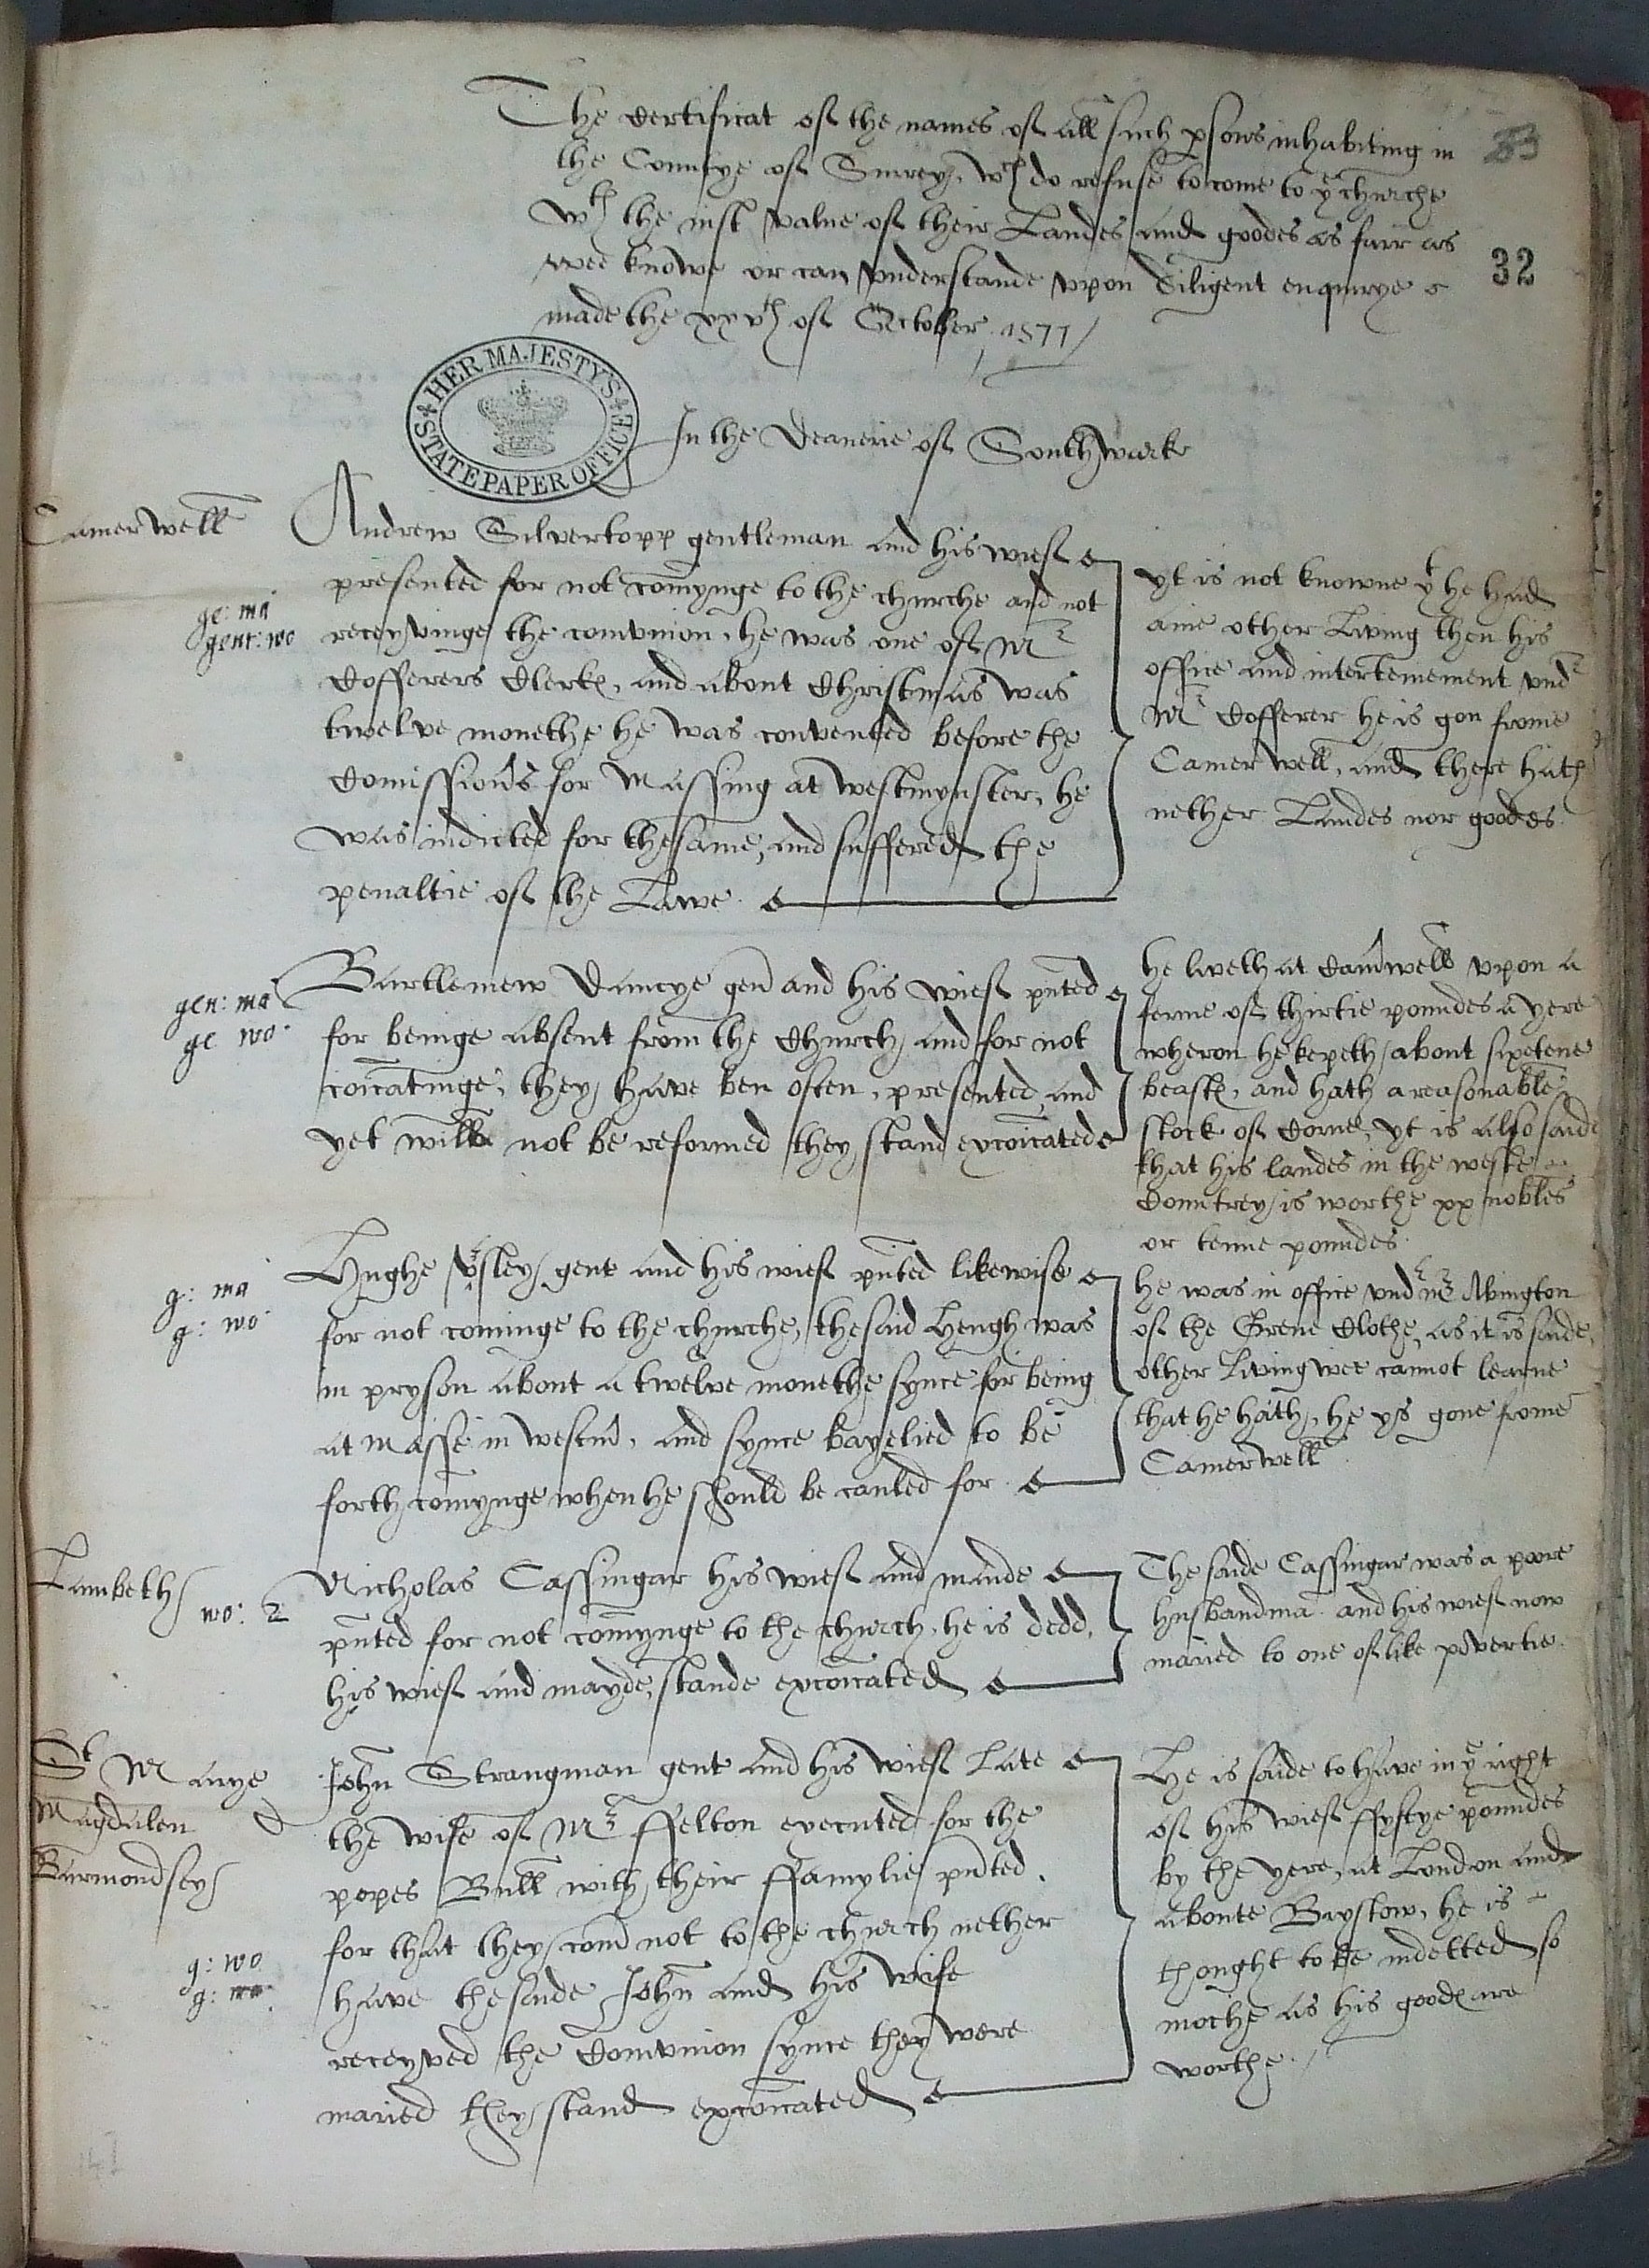 The Certificat of the names of all such psons inhabiting in
the Countye of Surrey, wch do refuse to come to ye churche
wth the iust value of their Landes and goodes as farr as
wee knowe or can vnderstande vpon diligent enquirye
made the xxvth of October 1577
83
32
HER MAJESTY'S STATE PAPER OFFICE
In the Deanerie of Southwarke
Camerwell
ge: ma
gent: wo
Andrew Silvertopp gentleman and his wief
presented for not comynge to the churche and not
receyvinge the comvnion, he was one of Mr
Cofferers Clerkes, and about Christmas was
twelve monethe he was convented before the
Comissions for Massing at westmynster, he
was indicted for thesame, and suffered the
penaltie of the Lawe.
yt is not knowne yt he had
anie other Living then his
office and interteinement vndr
Mr Cofferer he is gon frome
Camerwell, and there hath
nether Landes nor goodes.
gen: ma
ge wo
Bartlemew Dancye gen and his wief pnted
for beinge absent from the Church, and for not
coicatinge, they have ben often, presented, and
yet will not be reformed they stand excoicated
he liveth at Camwell vpon a
ferme of thirtie poundes a yere
wheron he kepeth about sixetene
beastes, and hath a reasonable
stock of Corne, yt is also saide
that his landes in the weste
Countrey is worthe xx nobles
or tenne poundes.
g: ma
g: wo
Hughe sley gent and his wief pnted likewise
for not cominge to the churche, thesaid Heugh was
in pryson about a twelve monethe synce for being
at Masse in westm, and synce bayelied to be
forth comynge when he should be caulled for
he was in office vndr mr Abington
of the Grene Clothe, as it is saide,
other Living wee cannot learne
that he hath, he ys gone frome
Camerwell
Lambeth
wo: 2
Nicholas Cassingar his wief and maide
pnted for not comynge to the church, he is dedd,
his wief and mayde, stande excoicated
The saide Cassingar was a poore
husbandma and his wief now
maried to one of like povertie.
St Marye
Magdalen
Barmondsey
g: wo
g: ma
John Strangman gent and his wief late
the wife of Mr ffelton executed for the
popes Bull with their ffamylie pnted,
for that they com not to the church nether
have thesaide John and his wife
receyved the Comvnion synce they were
maried they stand excoicated
He is saide to have in ye right
of his wief ffyftye poundes
by the yere, at London and
aboute Barstow, he is
thought to be indetted so
moche as his goodes are
worthe.